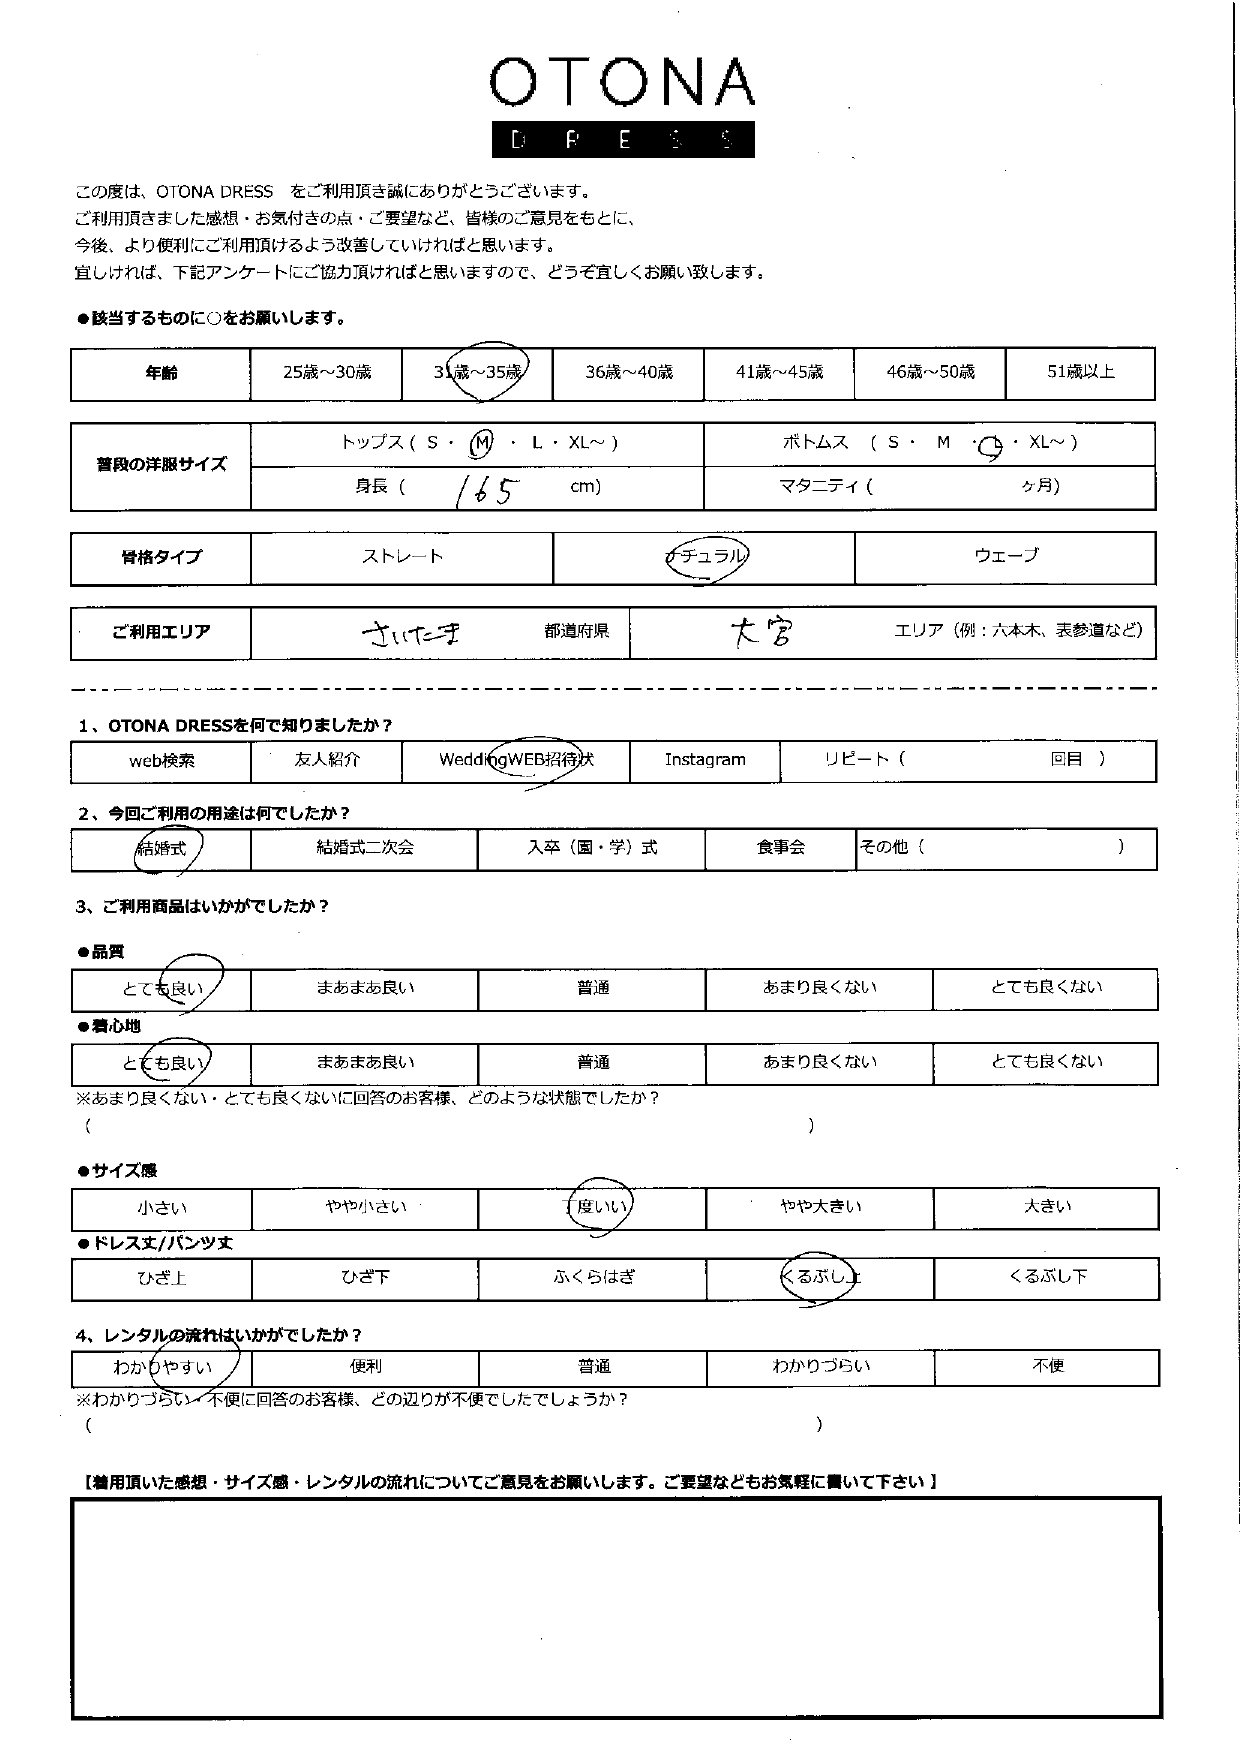 OTONA
DRESS
この度は、OTONA DRESS をご利用頂き誠にありがとうございます。
ご利用頂きました感想・お気付きの点・ご要望など、皆様のご意見をもとに、
今後、より便利にご利用頂けるよう改善していければと思います。
宜しければ、下記アンケートにご協力頂ければと思いますので、どうぞ宜しくお願い致します。
●該当するものに○をお願いします。
年齢 25歳～30歳 31歳～35歳 36歳～40歳 41歳～45歳 46歳～50歳 51歳以上
普段の洋服サイズ
トップス ( S ・ M ・ L ・ XL～ ) ボトムス ( S ・ M ・ L ・ XL～ )
身長 ( 165 cm) マタニティ ( ヶ月)
骨格タイプ ストレート ナチュラル ウェーブ
ご利用エリア さいたま 都道府県 大宮 エリア（例：六本木、表参道など）
1、OTONA DRESSを何で知りましたか？
web検索 友人紹介 WeddingWEB招待状 Instagram リピート（ 回目 ）
2、今回ご利用の用途は何でしたか？
結婚式 結婚式二次会 入卒（園・学）式 食事会 その他（ ）
3、ご利用商品はいかがでしたか？
●品質
とても良い まあまあ良い 普通 あまり良くない とても良くない
●着心地
とても良い まあまあ良い 普通 あまり良くない とても良くない
※あまり良くない・とても良くないに回答のお客様、どのような状態でしたか？
（ ）
●サイズ感
小さい やや小さい 丁度いい やや大きい 大きい
●ドレス丈/パンツ丈
ひざ上 ひざ下 ふくらはぎ くるぶし上 くるぶし下
4、レンタルの流れはいかがでしたか？
わかりやすい 便利 普通 わかりづらい 不便
※わかりづらい・不便に回答のお客様、どの辺りが不便でしたでしょうか？
（ ）
【着用頂いた感想・サイズ感・レンタルの流れについてご意見をお願いします。ご要望などもお気軽に書いて下さい 】